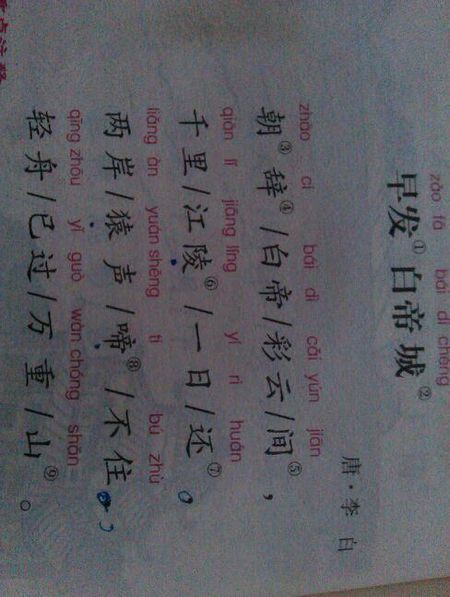 zǎo fā bái dì chéng
早发①白帝城②
唐·李白
zhāo cí bái dì cǎi yún jiān
朝③辞④/白帝/彩云/间⑤，
qiān lǐ jiāng líng yí rì huán
千里/江陵⑥/一日/还⑦。
liǎng àn yuán shēng tí bú zhù
两岸/猿声/啼⑧/不住，
qīng zhōu yǐ guò wàn chóng shān
轻舟/已过/万重/山⑨。